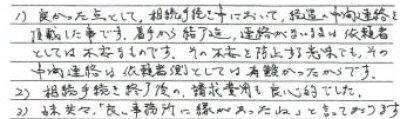 1) 良かった点として、相続手続き中において、経過の中間連絡を
頂戴した事です。着手から終了迄、連絡がないままは依頼者
としては不安なものです。その不安を防止する意味でも、その
中間連絡は依頼者側としては有難かったからです。
2) 相続手続き終了後の、請求費用も良心的でした。
3) 妹共々、「良い事務所に縁があったね」と言っております